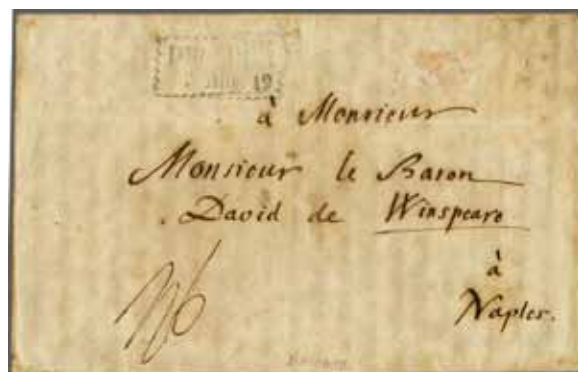 19
à Monsieur
Monsieur le Baron
David de Winspeare
à
Naples.